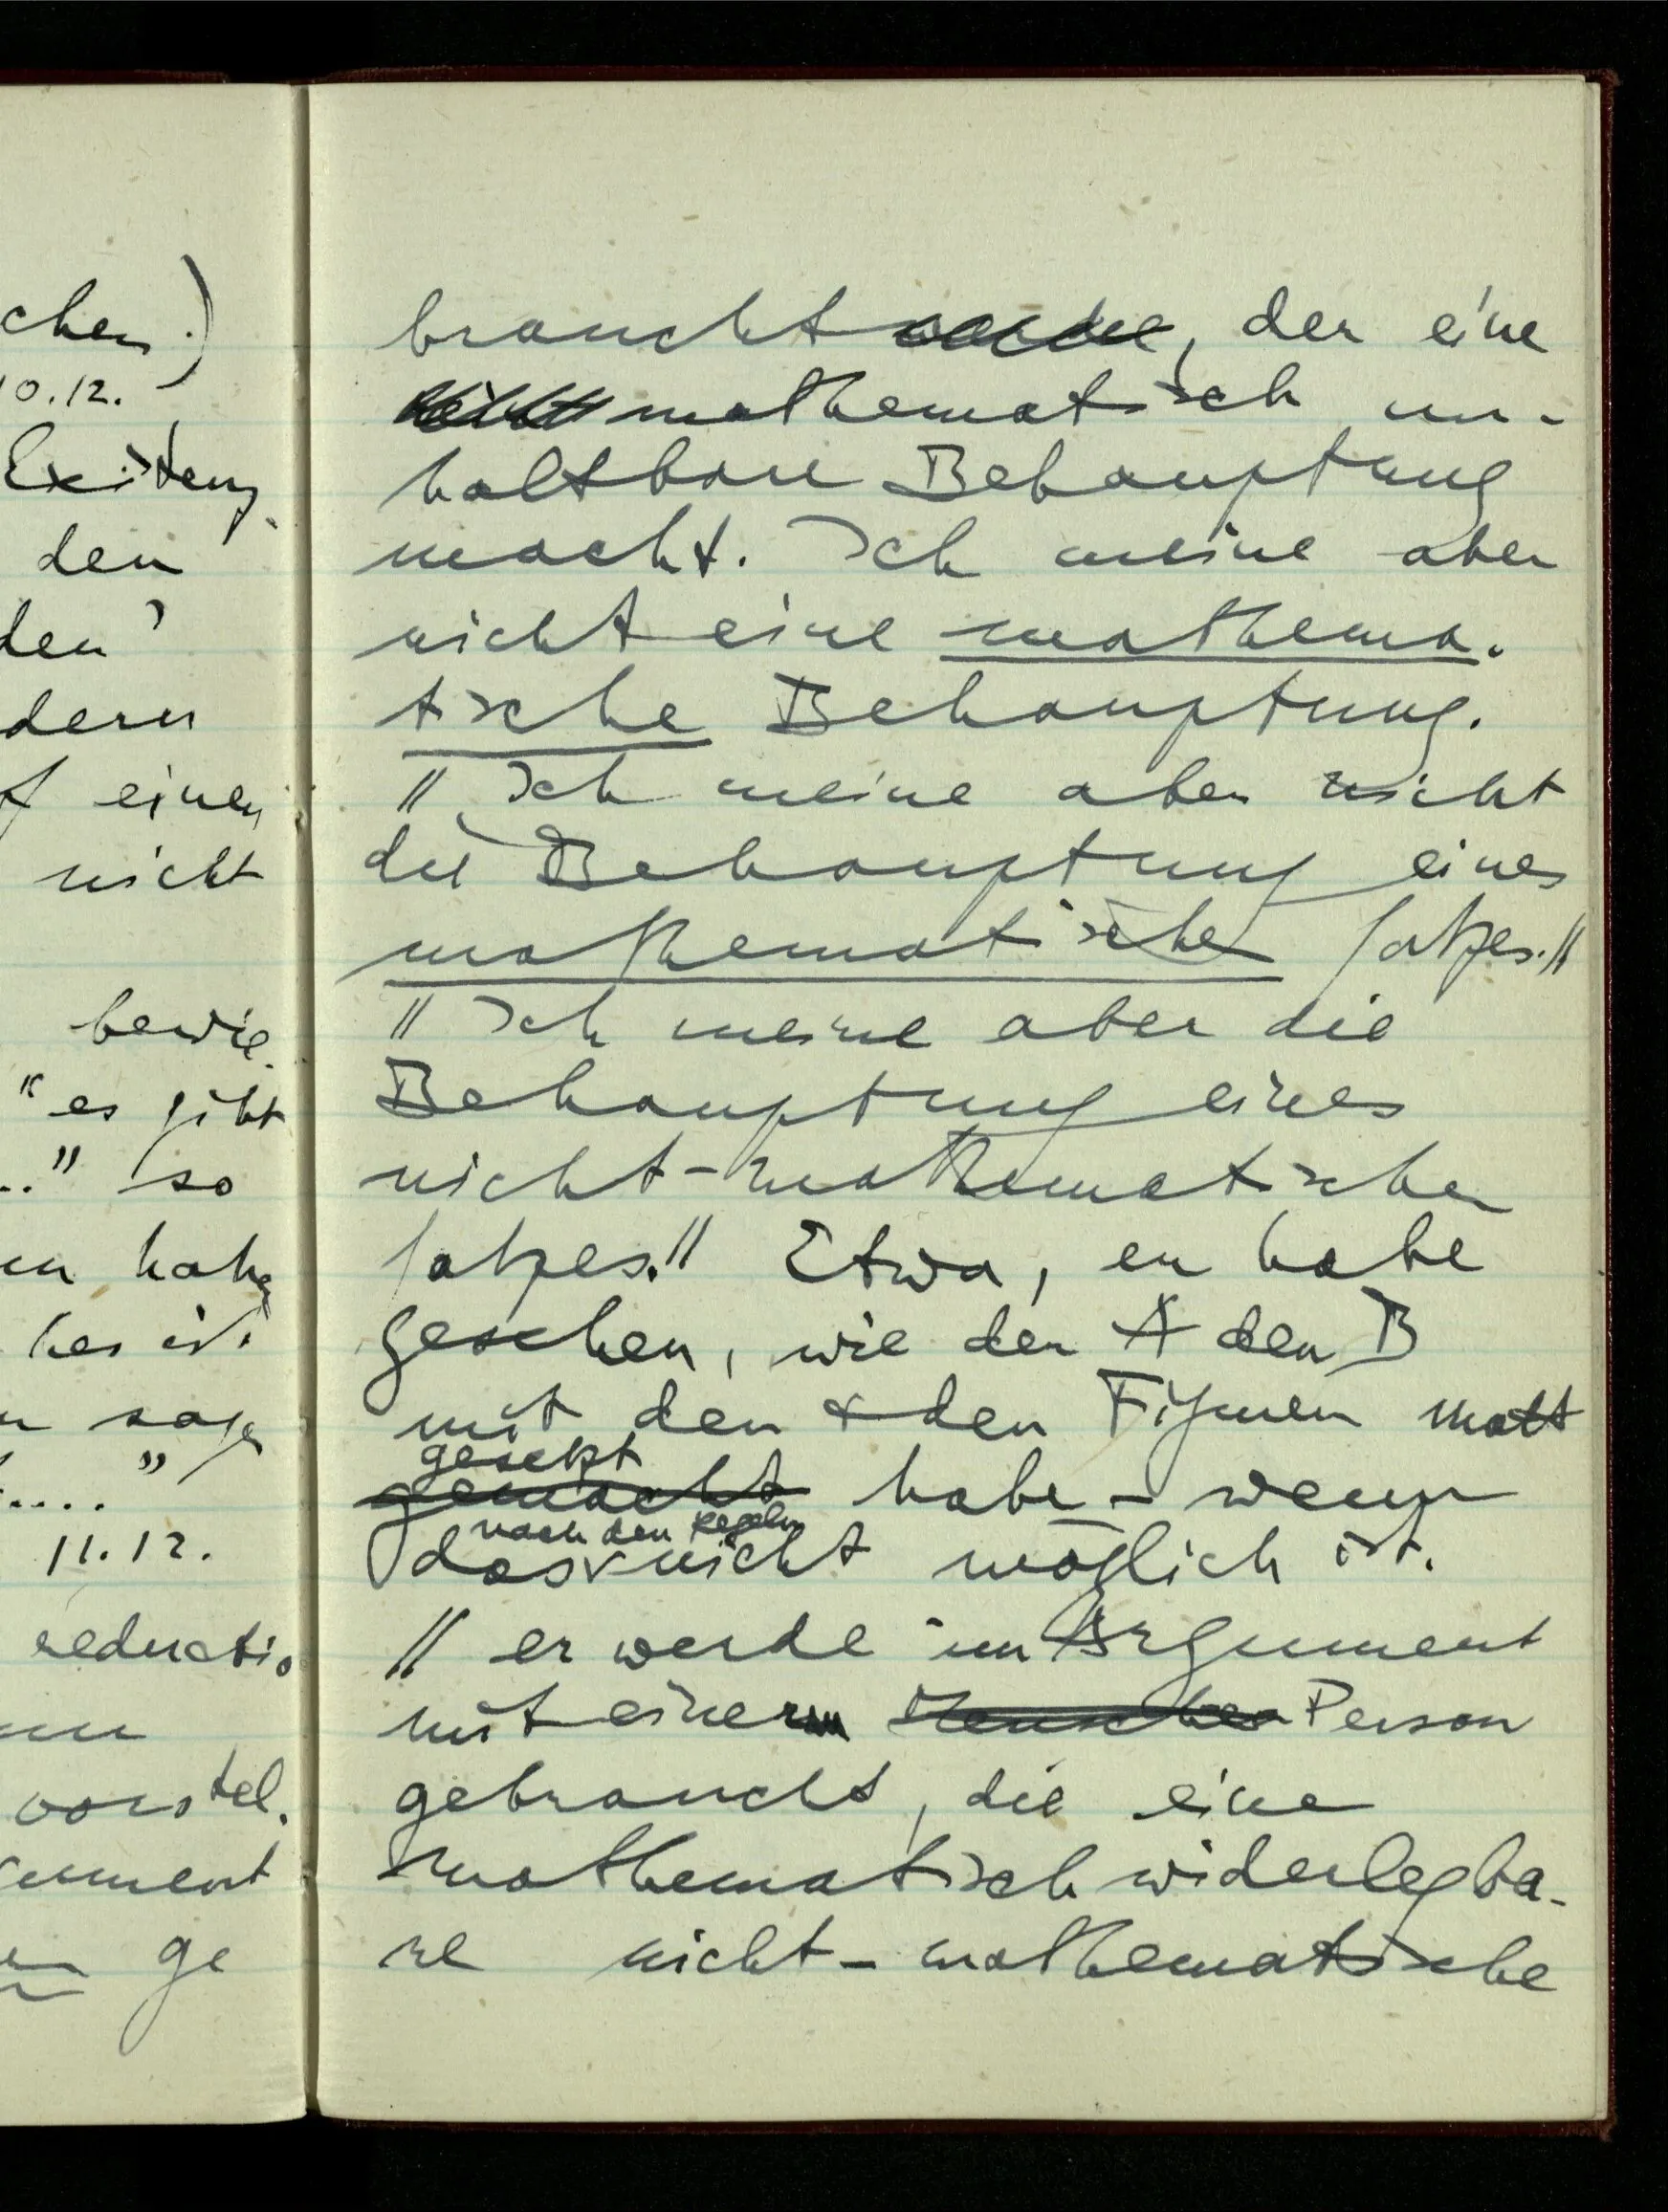 chen.)
10.12.
Existenz
den
den'
dern
f einen
nicht
bewie
"es gibt
.." so
en habe
hes ist
n sage
....."
11.12.
reductio
vorstel.
gument
ge
braucht werde, der eine
mathematisch un-
haltbare Behauptung
macht. Ich meine aber
nicht eine mathema-
tische Behauptung.
// Ich meine aber nicht
die Behauptung eines
mathematischen Satzes.//
// Ich meine aber die
Behauptung eines
nicht-mathematischen
Satzes.// Etwa, er habe
gesehen, wie der A den B
mit den & den Figuren matt
gesetzt
gemacht habe – wenn
nach den Regeln
das nicht möglich ist.
// er werde im Argument
mit einer Menschen Person
gebraucht, die eine
mathematisch widerlegba-
re nicht-mathematische